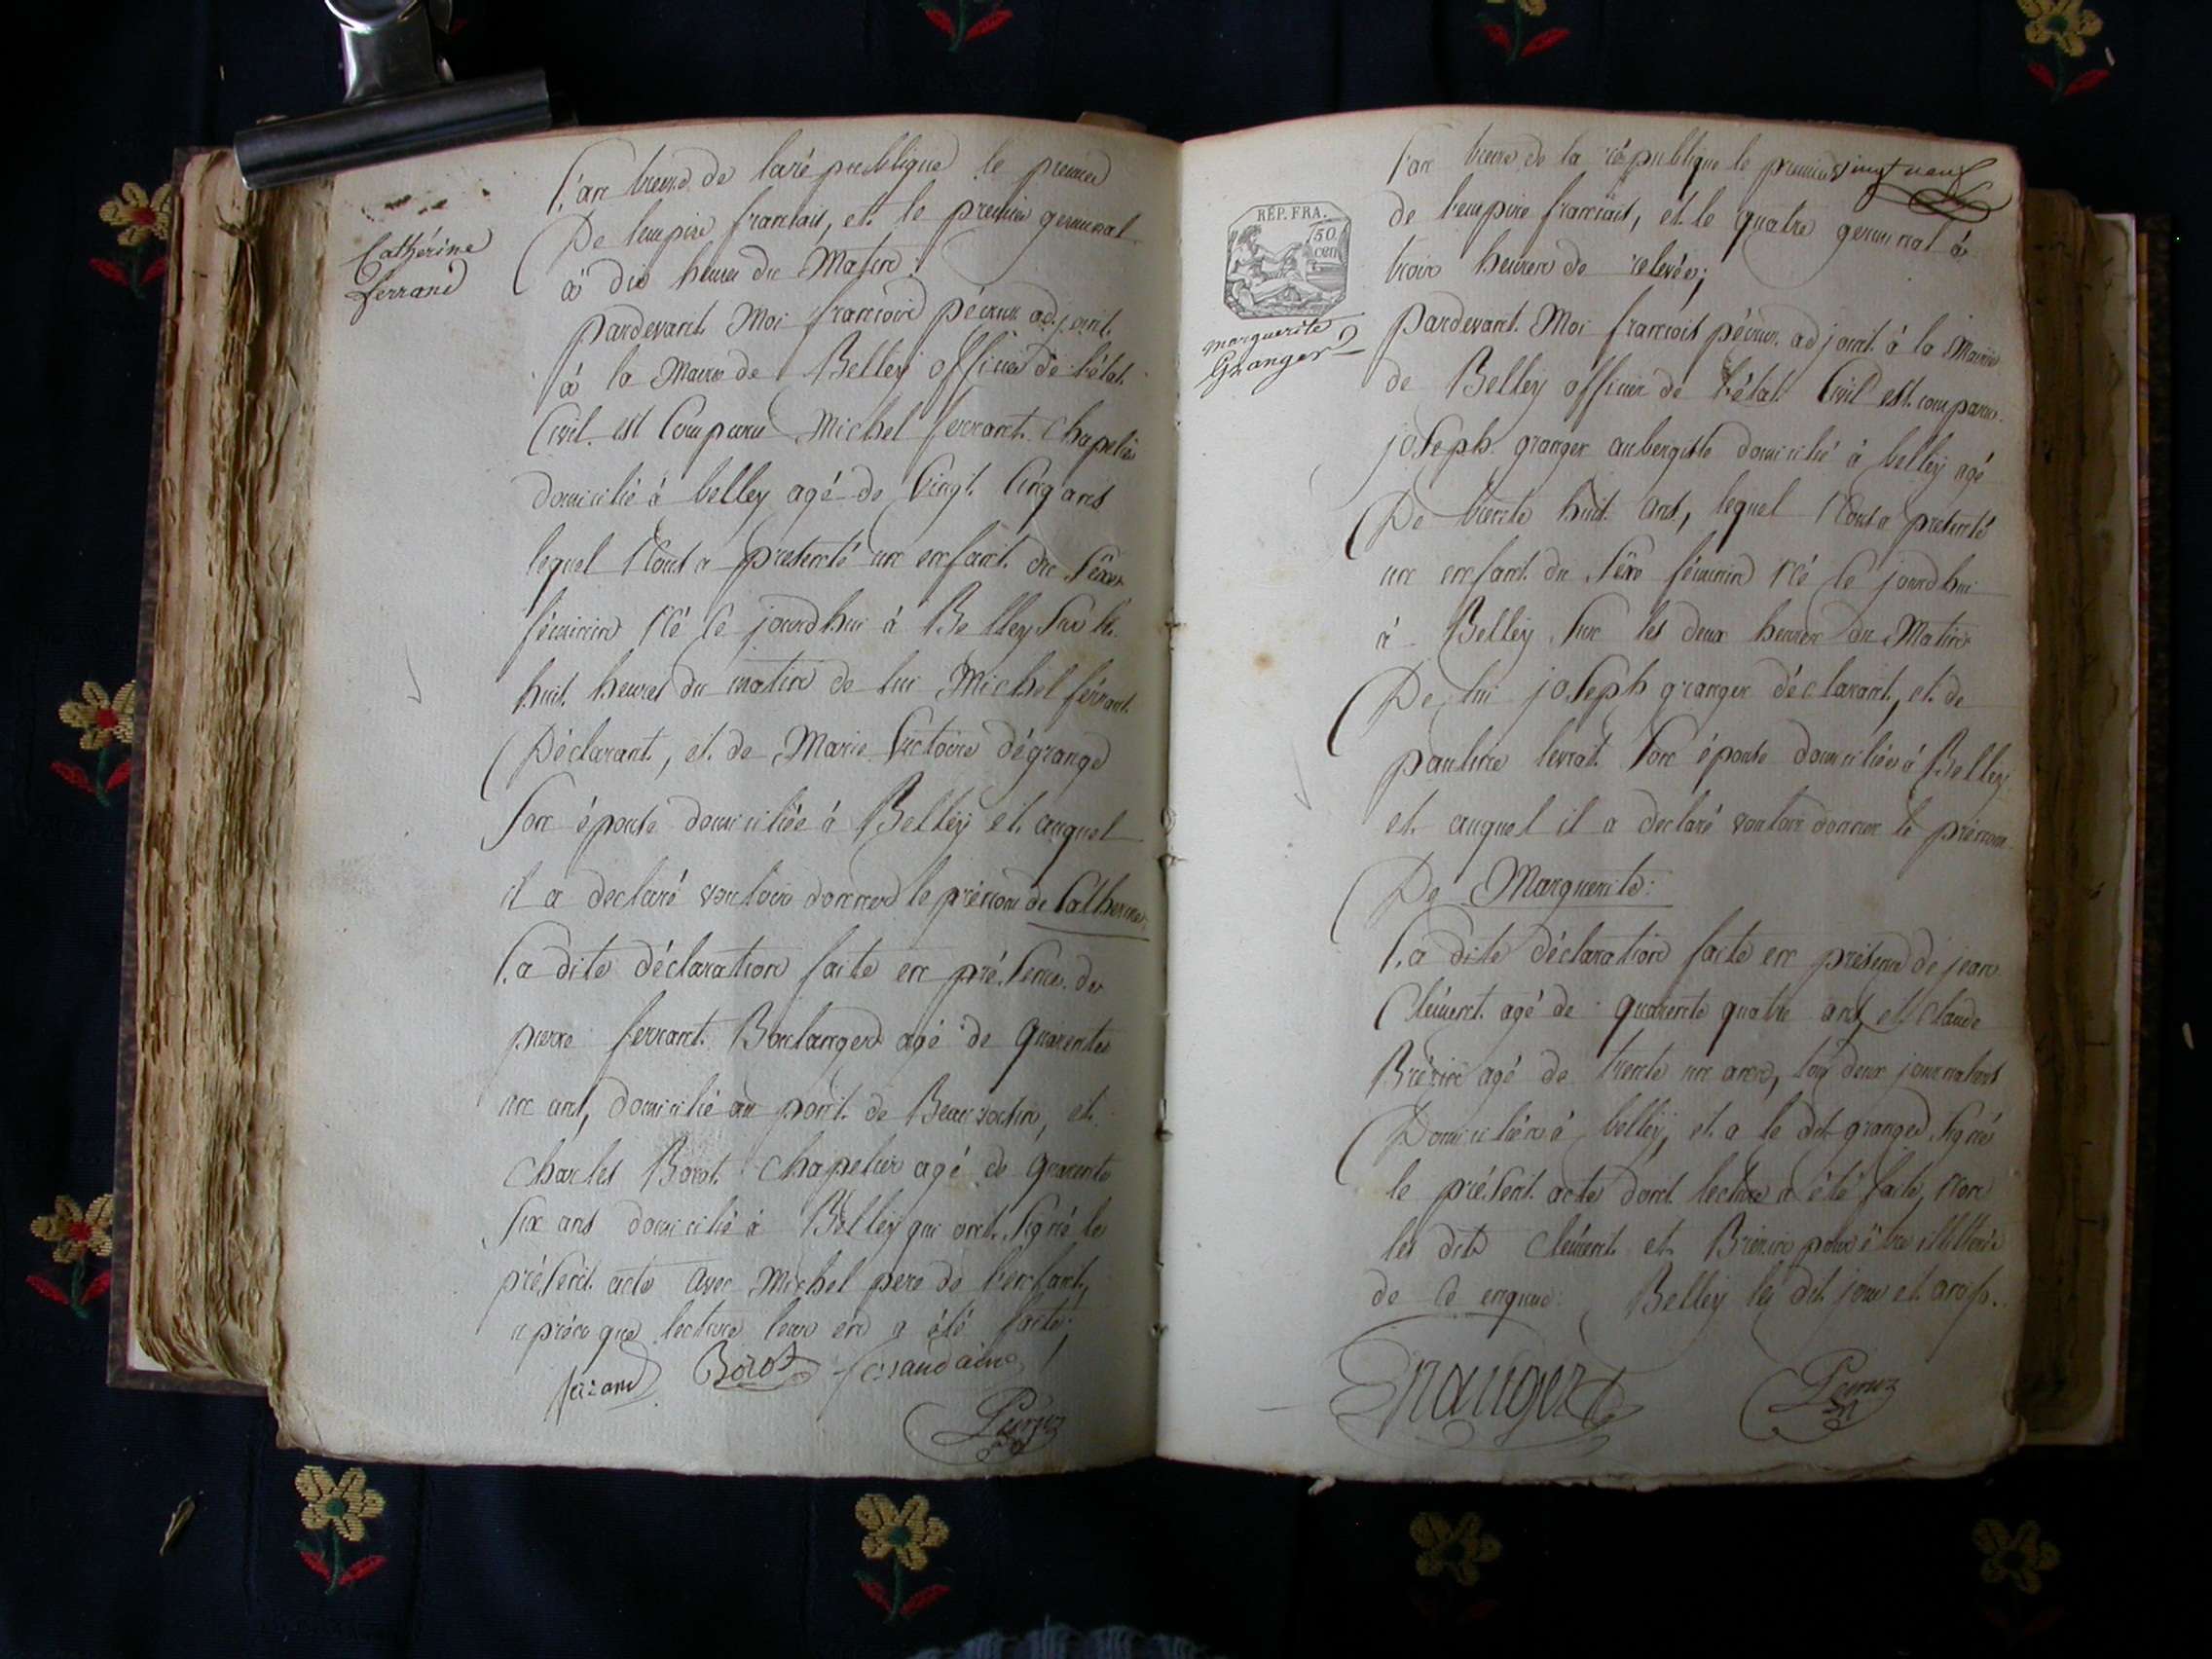 Catherine
ferrand
L'an treize de la république le premier
De l'empire francais, et le premier germinal
à dix heures du Matin;
pardevant Moi francois péruz adjoint
à la Mairie de Belley officier de l'état
Civil est Comparu Michel ferrant Chapelier
domicilié à belley agé de Vingt Cinq ans
lequel Nous a presenté un enfant du Sêxe
féminin Né Ce jourdhui à Belley Sur les
huit heures du matin de lui Michel ferrant
Déclarant, et de Marie Victoire dégrange
Son épouse domiciliée à Belley et auquel
il a declaré vouloir donner le prénom de Catherine
La dite déclaration faite en présence de
pierre ferrant Boulanger agé de quarente
un ans, domicilié au pont de Beauvoisin, et
Charles Borot Chapelier agé de quarente
Six ans domicilié à Belley qui ont Signé le
présent acte avec Michel pere de l'enfant,
après que lecture leur en a été faite;
ferrand Borot
Péruz
vingt neuf
RÉP. FRA.
50
CEN
marguerite
Granger
L'an treize de la république le premier
de l'empire francais, et le quatre germinal à
trois heures de relevée;
pardevant Moi francois péruz adjoint à la Mairie
de Belley officier de l'état Civil est comparu
joseph granger aubergiste domicilié à belley agé
De trente huit ans, lequel Nous a presenté
un enfant du Sêxe féminin Né Ce jourdhui
à Belley Sur les deux heures du Matin
De lui joseph granger déclarant, et de
pauline levrat Son épouse domiciliée à Belley
et auquel il a declaré vouloir donner le prénom
De Marguerite:
La dite déclaration faite en présence de jean
Clément agé de quarente quatre ans et Claude
agé de trente un ans, tous deux journaliers
Domiciliés à belley, et a le dit granger Signé
le présent acte dont lecture a été faite, Non
les dits Clément et pour être illittérés
de Ce enquis: Belley les dit jour et an
Granger Péruz